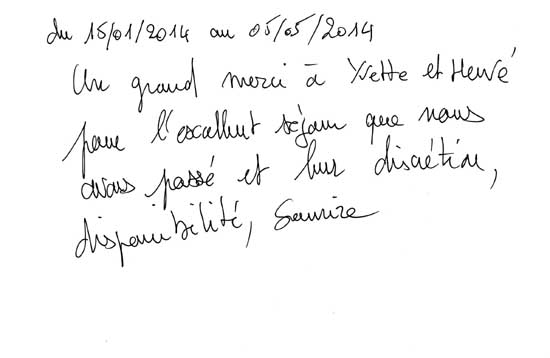 du 15/01/2014 au 05/05/2014
Un grand merci à Yvette et Hervé
pour l'excellent séjour que nous
avons passé et leur discrétion,
disponibilité, sourire